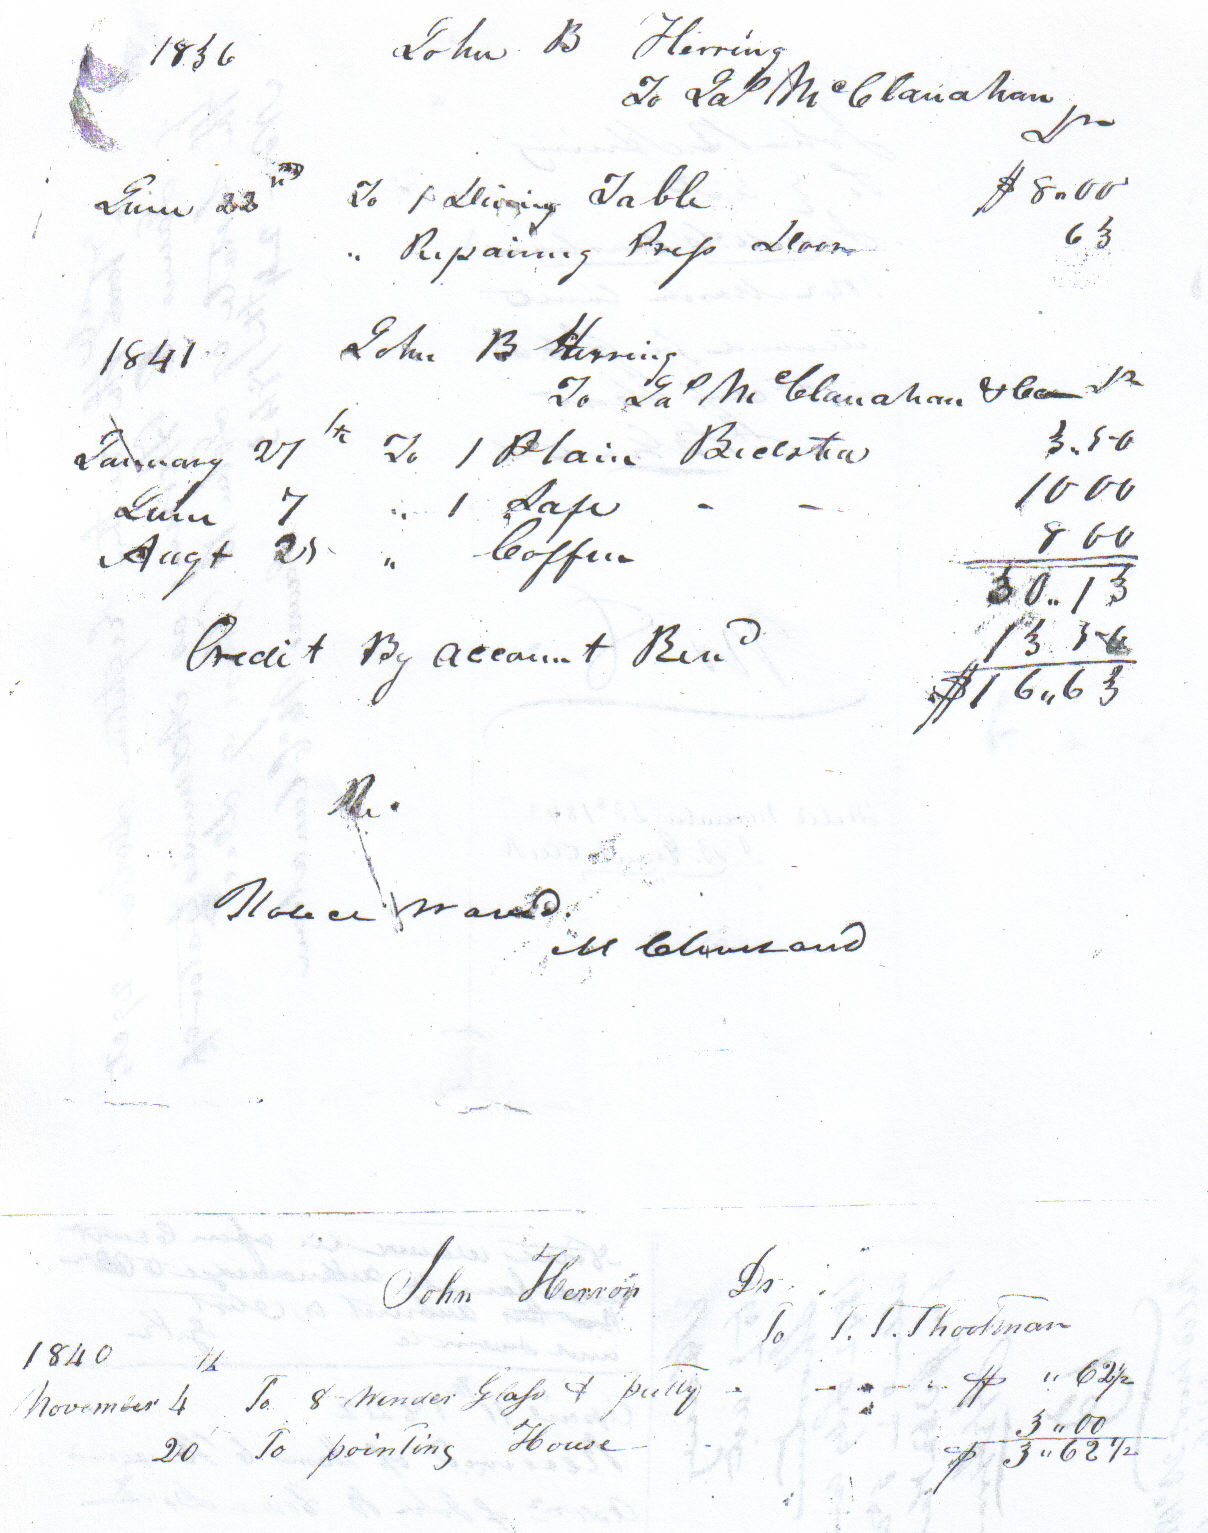 1836 John B Herring
To Jas McClanahan
Dr
June 22nd To 1 Dining Table $8.00
" Repairing Press Door 63
1841 John B Herring
To Jas McClanahan & Co Dr
January 27th To 1 Plain Bedstea 3.50
June 7 " 1 Safe - - 10 00
Augt 25 " Coffin 8 00
30..13
Credit By account Ren'd 13 50
$16..63
M Cleveland
John Herron Dr.
To T. T. Thootman
1840
November 4th To 8 Winder Glass & putty - - - - - $ " 62 1/2
20 To pointing House 3 " 00
$ 3 " 62 1/2